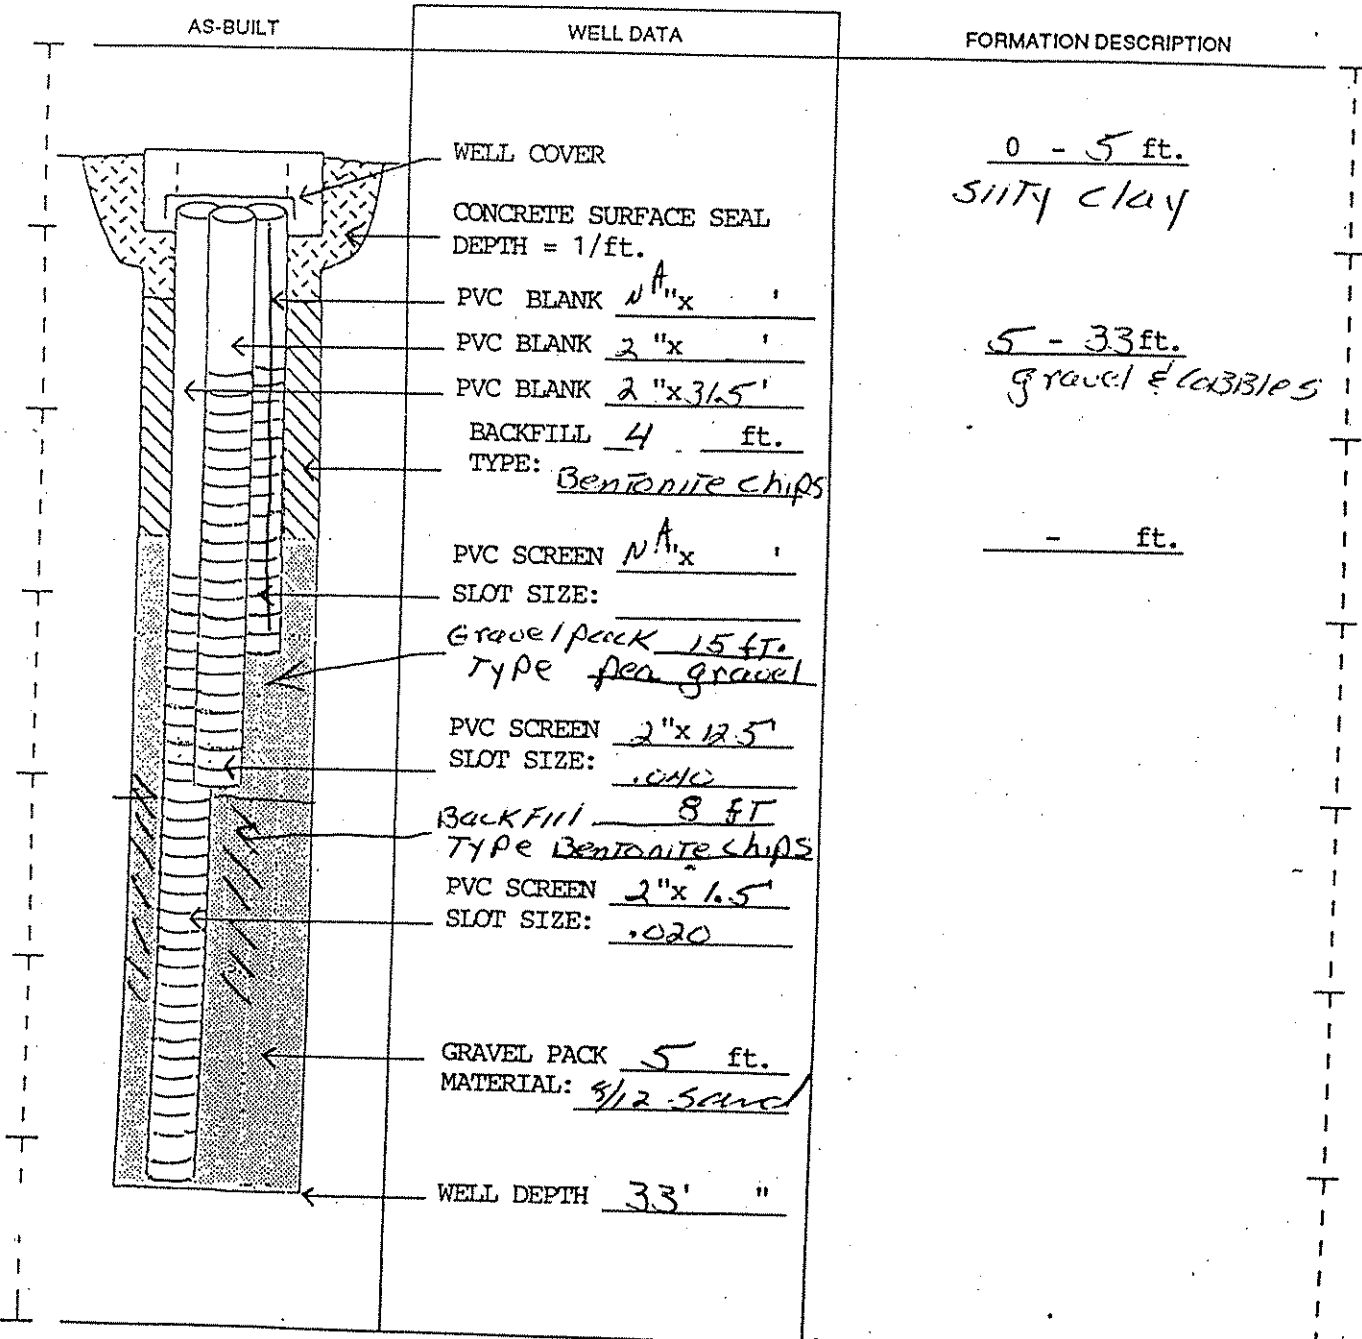 AS-BUILT
WELL DATA
FORMATION DESCRIPTION
WELL COVER
CONCRETE SURFACE SEAL
DEPTH = 1/ft.
PVC BLANK NA "x '
PVC BLANK 2 "x '
PVC BLANK 2 "x 31.5'
BACKFILL 4 ft.
TYPE: Bentonite chips
PVC SCREEN NA "x '
SLOT SIZE:
Gravel pack 15 fT.
Type pea gravel
PVC SCREEN 2"x 12.5'
SLOT SIZE: .040
BackFill 8 fT
Type Bentonite chips
PVC SCREEN 2"x 1.5'
SLOT SIZE: .020
GRAVEL PACK 5 ft.
MATERIAL: 8/12 sand
WELL DEPTH 33' "
0 - 5 ft.
silty clay
5 - 33 ft.
gravel & cobbles
- ft.